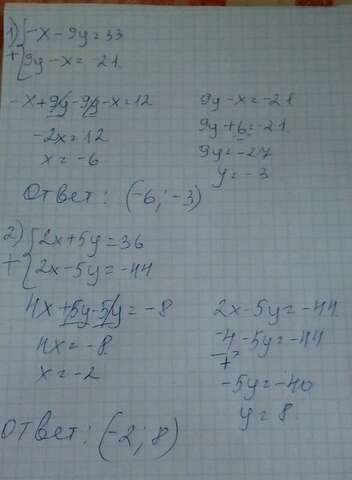 1) { -x - 9y = 33
+ { 9y - x = -21
-x + 9y - 9y - x = 12
-2x = 12
x = -6
9y - x = -21
9y + 6 = -21
9y = -27
y = -3
Ответ: (-6; -3)
2) { 2x + 5y = 36
+ { 2x - 5y = -44
4x + 5y - 5y = -8
4x = -8
x = -2
2x - 5y = -44
-4 - 5y = -44
+
-5y = -40
y = 8
Ответ: (-2; 8)